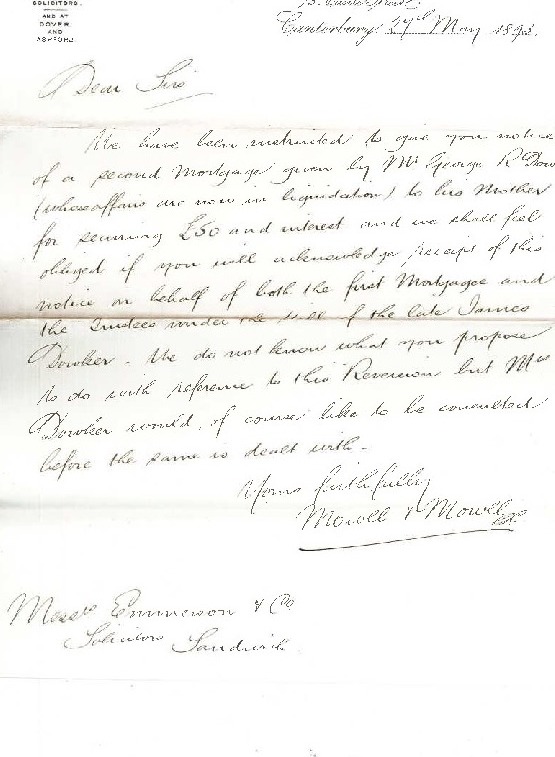 SOLICITORS.
AND AT
DOVER
AND
ASHFORD
Canterbury 27th May 1892.
Dear Sirs
We have been instructed to give you notice
of a second Mortgage given by Mr George R Dow
(whose affairs are now in liquidation) to his Mother
for securing £50 and interest and we shall feel
obliged if you will acknowledge receipt of this
notice on behalf of both the first Mortgagee and
the Trustees under the Will of the late James
Dowker. We do not know what you propose
to do with reference to this Reversion but Mrs
Dowker would, of course like to be consulted
before the same is dealt with.
Yours faithfully
Mowll & Mowll
Messrs Emmerson & Co
Solicitors
Sandwich